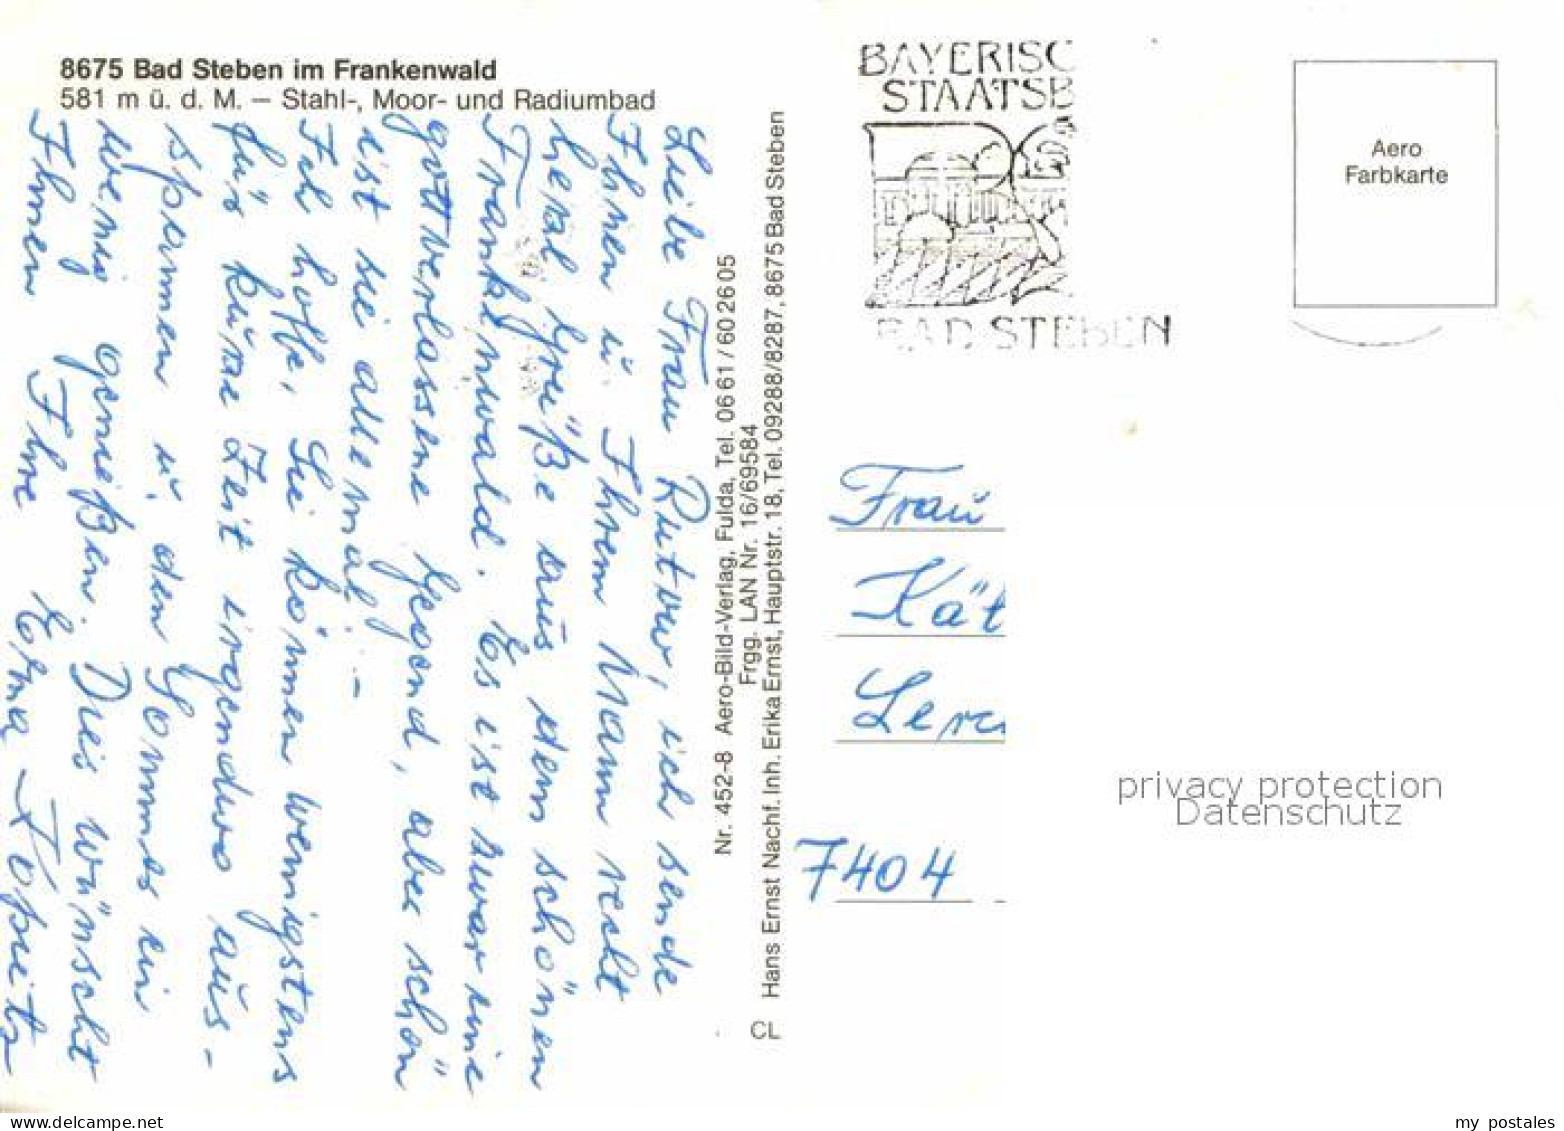 8675 Bad Steben im Frankenwald
581 m ü. d. M. – Stahl-, Moor- und Radiumbad
Liebe Frau Rutow, ich sende
Ihnen u. Ihrem Mann recht
herzl. Grüße aus dem schönen
Frankenwald. Es ist zwar eine
gottverlassene Gegend, aber schön
ist sie allemal! –
Ich hoffe, Sie können wenigstens
für kurze Zeit irgendwo aus-
spannen u. den Sommer ein
wenig genießen. Dies wünscht
Ihnen Ihre Erna
Nr. 452-8 Aero-Bild-Verlag, Fulda, Tel. 06 61 / 60 26 05
Frgg. LAN Nr. 16/69584
Hans Ernst Nachf. Inh. Erika Ernst, Hauptstr. 18, Tel. 09288/8287, 8675 Bad Steben
CL
BAYERISC
STAATSB
BAD STEBEN
Aero
Farbkarte
Frau
Kät
Lerc
7404
privacy protection
Datenschutz
my postales